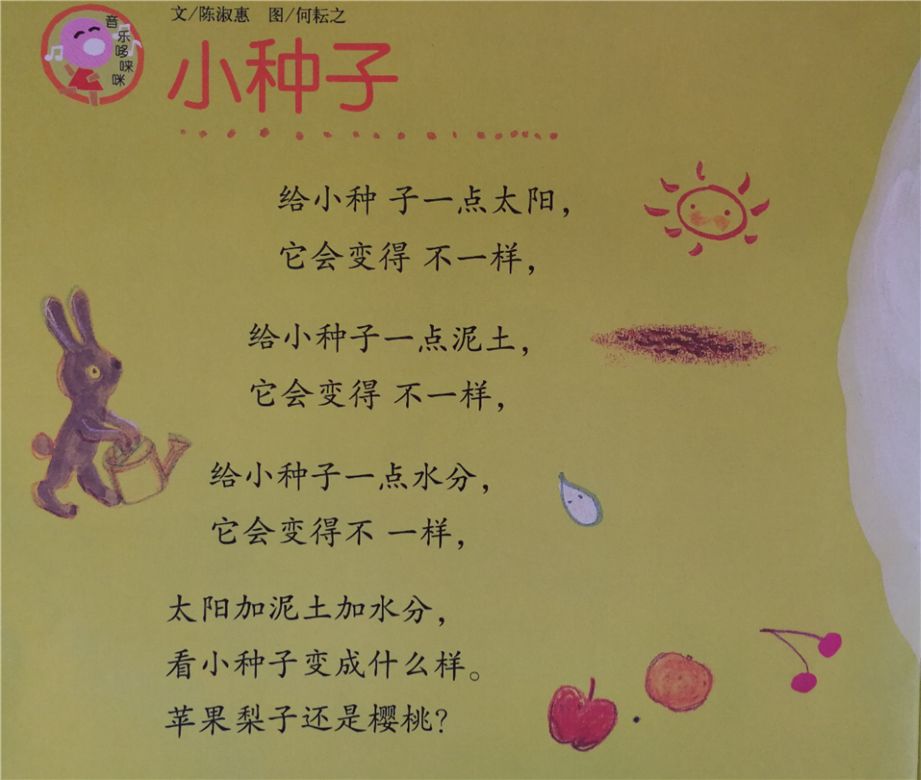 音乐哆唻咪
文/陈淑惠 图/何耘之
小种子
给小种子一点太阳，
它会变得不一样，
给小种子一点泥土，
它会变得不一样，
给小种子一点水分，
它会变得不一样，
太阳加泥土加水分，
看小种子变成什么样。
苹果梨子还是樱桃？